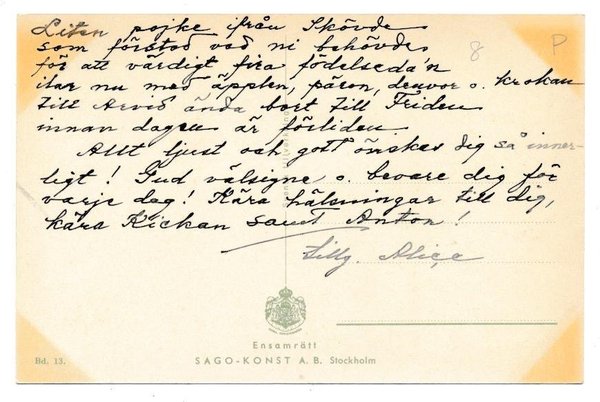 Liten pojke ifrån Skövde
som förstod vad ni behövde
för att värdigt fira födelseda'n
ilar nu med äpplen, päron, druvor o. krokan
till Arvid ända bort till Friden
innan dagen är förliden
Allt ljust och gott önskas dig så inner-
ligt! Gud välsigne o. bevare dig för
varje dag! Kära hälsningar till dig,
kära Kickan samt Anton!
Lilly. Alice
8
P
Ensamrätt
SAGO-KONST A. B. Stockholm
Bd. 13.